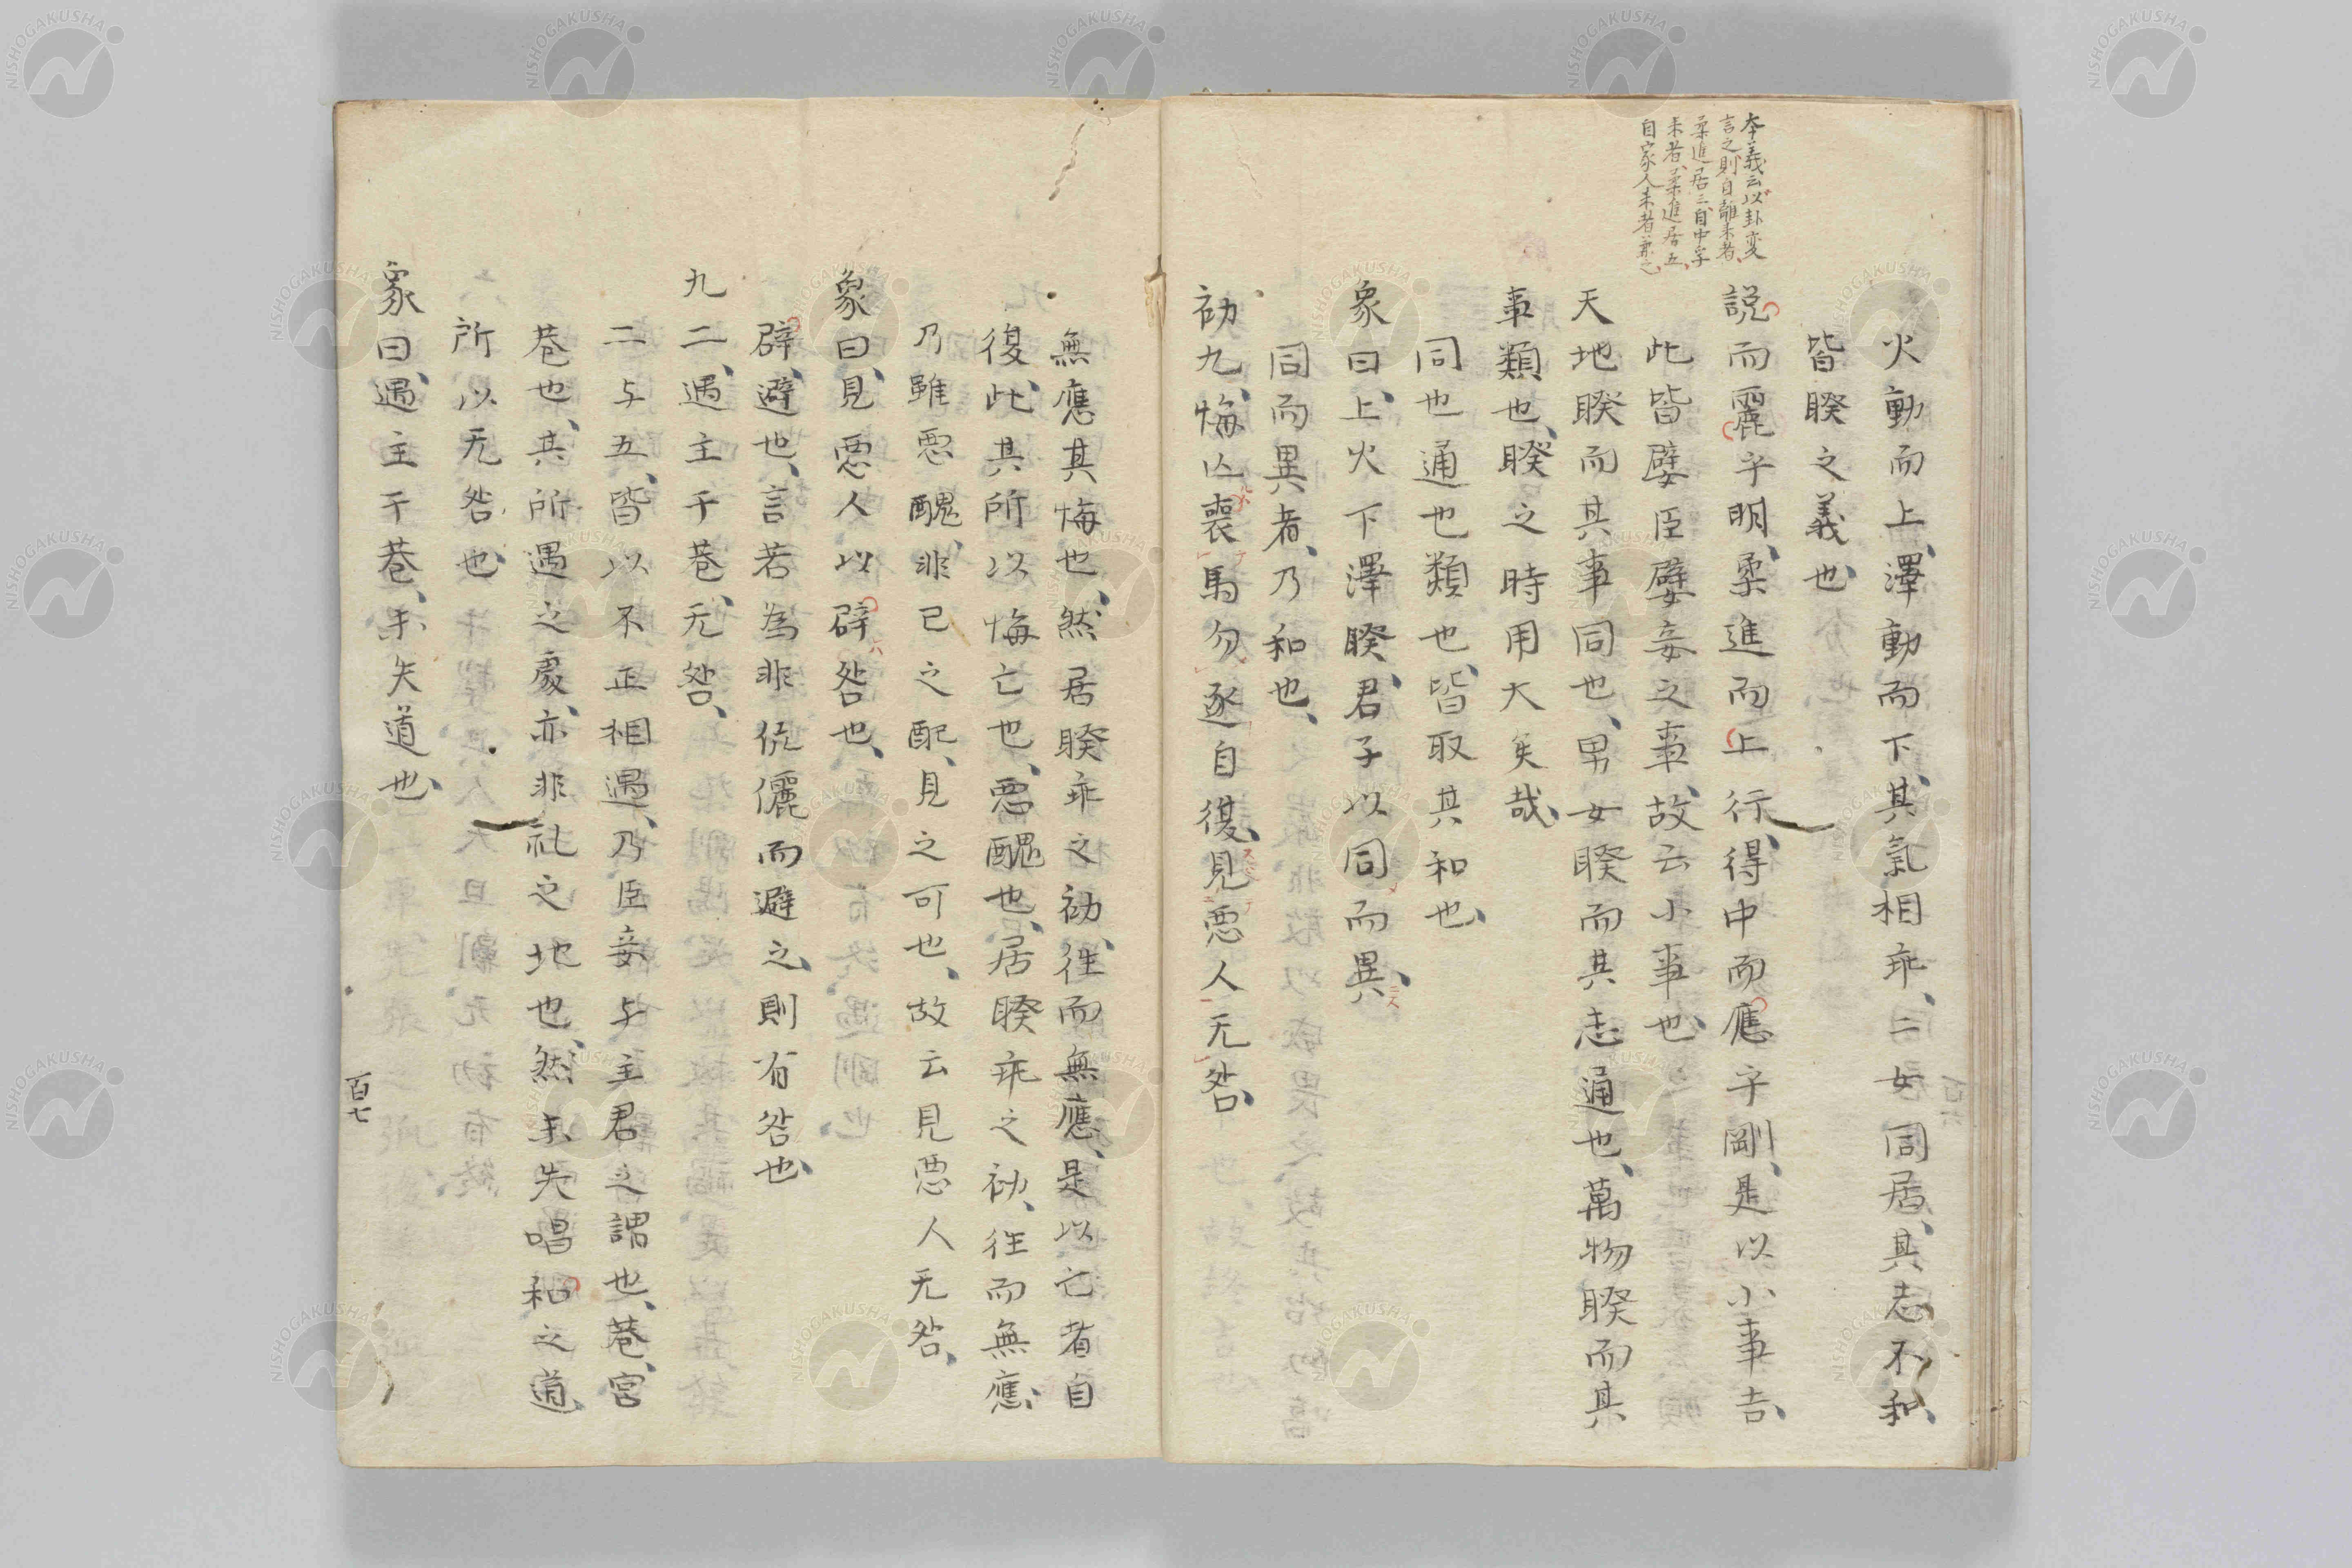 本義云以卦変
言之則自離来者
柔進居三自中孚
来者柔進居五
自家人来者兼之
火動而上、澤動而下、其氣相乖、二女同居、其志不和、
皆睽之義也、
説而麗乎明、柔進而上行、得中而應乎剛、是以小事吉、
此皆嬖臣嬖妾之事、故云小事也、
天地睽而其事同也、男女睽而其志通也、萬物睽而其
事類也、睽之時用大矣哉、
同也通也類也、皆取其和也、
象曰、上火下澤睽、君子以同而異、
同而異者、乃和也、
初九、悔亾、喪馬勿逐自復、見悪人无咎、
無應其悔也、然居睽乖之初、往而無應、是以亡者自
復、此其所以悔亡也、悪醜也、居睽乖之初、往而無應、
乃雖悪醜、非己之配、見之可也、故云見悪人无咎、
象曰、見悪人以辟咎也、
辟、避也、言若為非伉儷而避之、則有咎也、
九二、遇主于巷、无咎、
二与五、皆以不正相遇、乃臣妾与主君之謂也、巷、宮
巷也、其所遇之處、亦非礼之地也、然未失唱和之道、
所以无咎也、
象曰、遇主于巷、未失道也、
百七
NISHOGAKUSHA